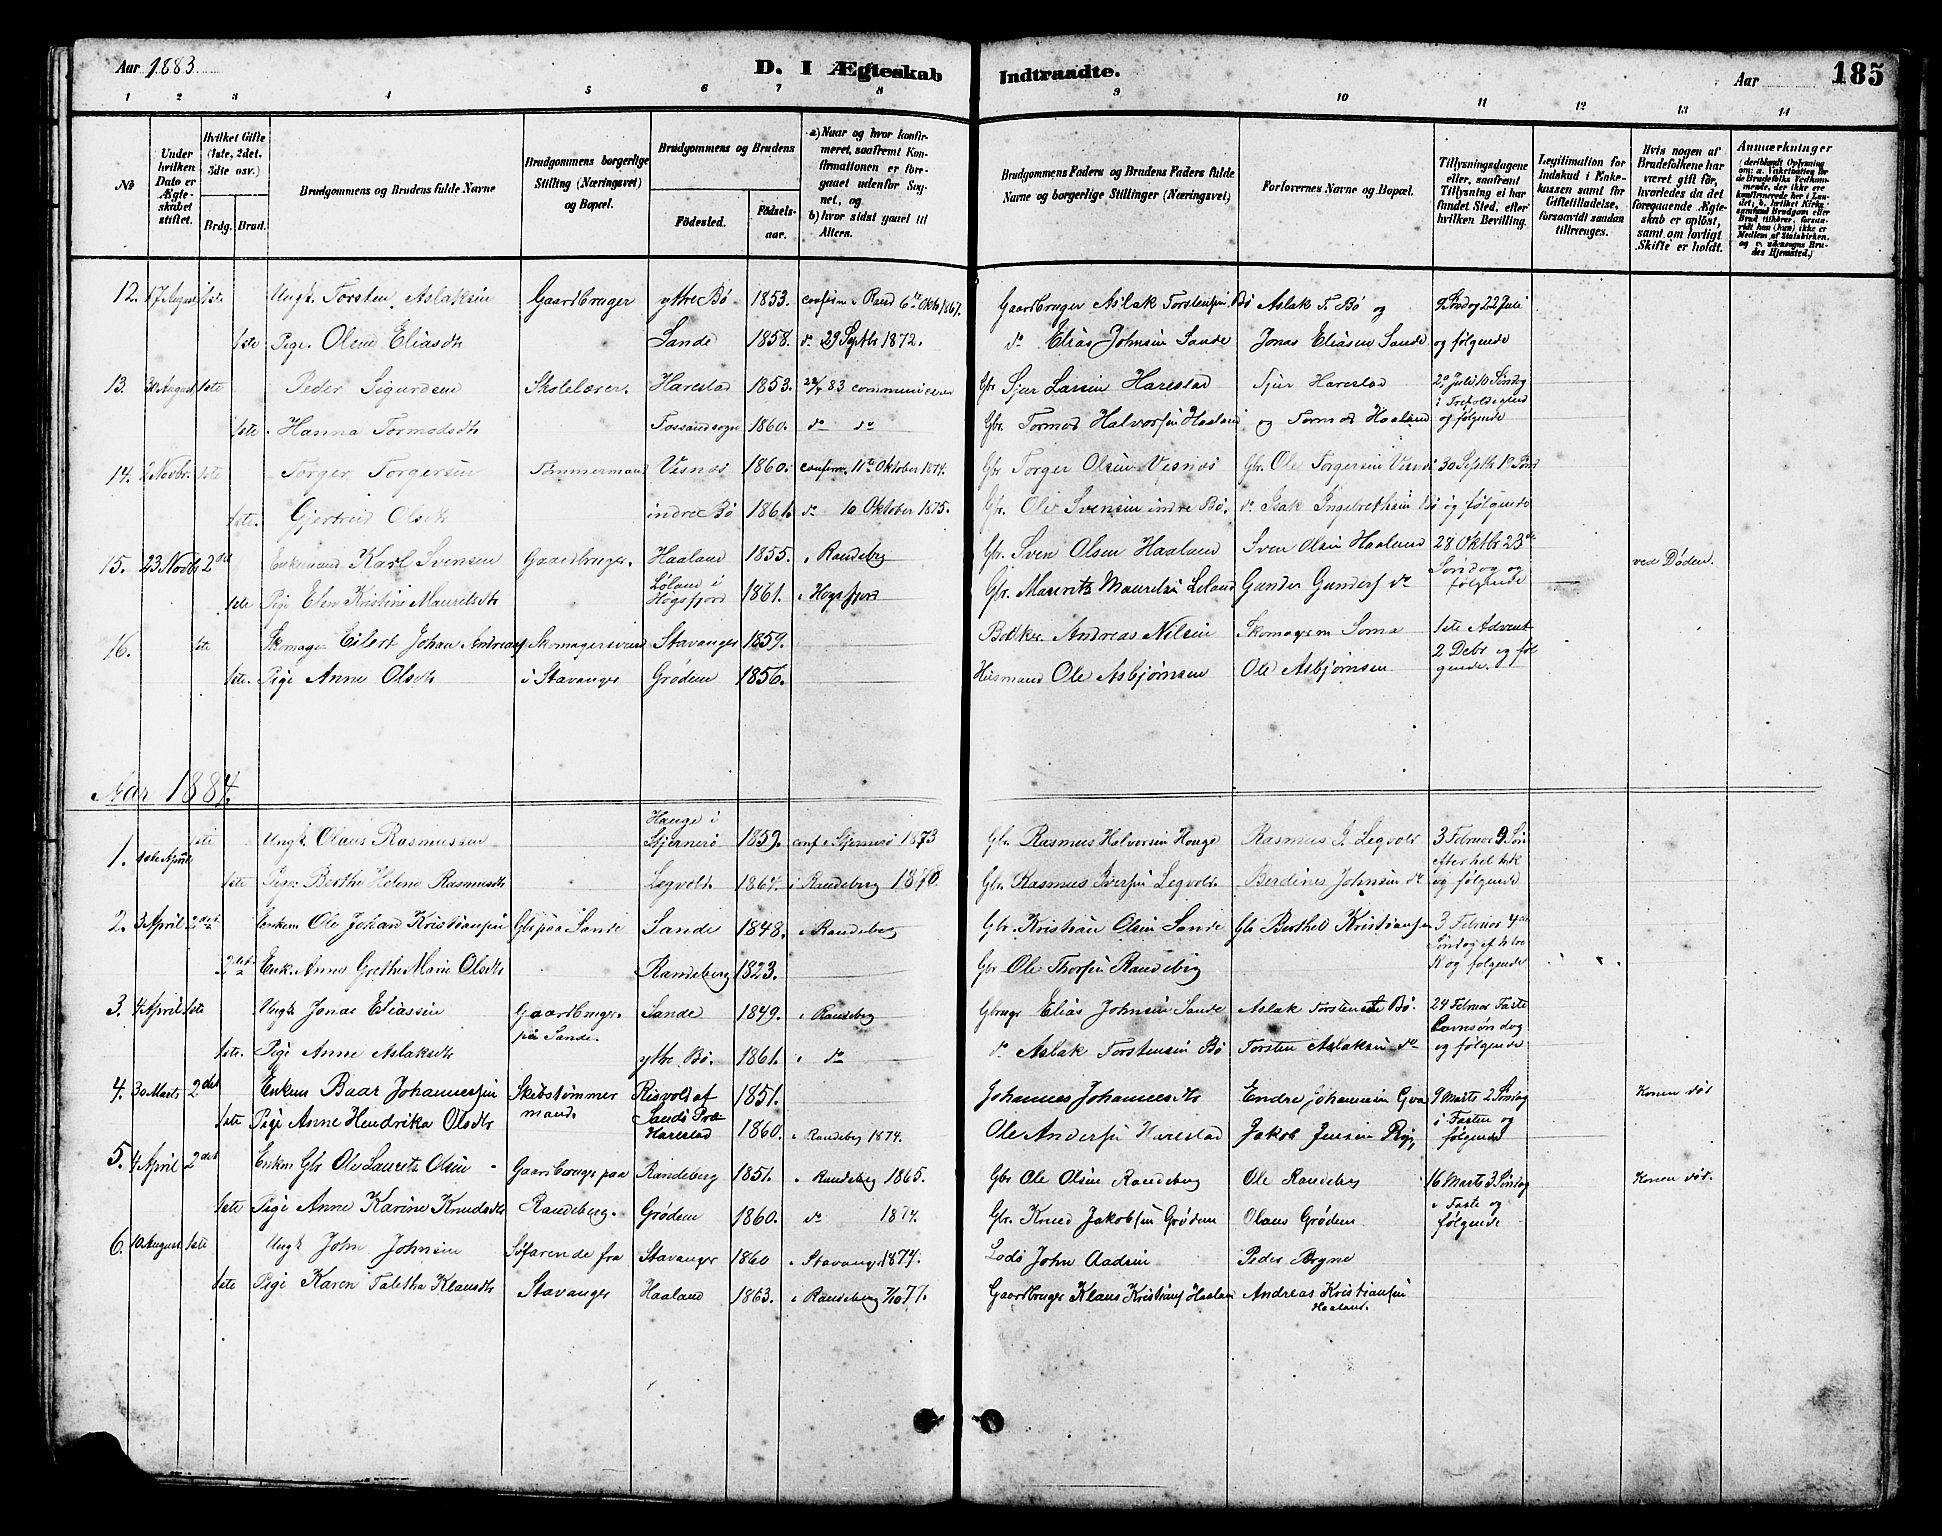 Aar 1883.
D. I Ægteskab Indtraadte.
Aar
185
1 2 3 4 5 6 7 8 9 10 11 12 13 14
No
Under hvilken Dato er Ægteskabet stiftet.
Hvilket Gifte (1ste, 2det, 3die osv.)
Brdg. Brud.
Brudgommens og Brudens fulde Navne
Brudgommens borgerlige Stilling (Næringsvei) og Bopæl.
Brudgommens og Brudens
Fødested.
Fødselsaar.
a) Naar og hvor konfirmeret, saafremt Konfirmationen er foregaaet udenfor Sognet, og
b) hvor sidst gaaet til Alters.
Brudgommens Faders og Brudens Faders fulde Navne og borgerlige Stillinger (Næringsvei)
Forlovernes Navne og Bopæl.
Tillysningsdagene eller, saafremt Tillysning ei har fundet Sted, efter hvilken Bevilling.
Legitimation for Indskud i Enkekassen samt for Giftetilladelse, forsaavidt saadan tiltrænges.
Hvis nogen af Brudefolkene har været gift før, hvorledes da det foregaaende Ægteskab er opløst, samt om lovligt Skifte er holdt.
Anmærkninger
12. 17 August 1ste Ungk. Torsten Aslaksen Gaardbruger ytre Bø 1853. confirm. i Rand 6te Okt 1867. Gaardbruger Aslak Torstensen Bø Aslak T. Bø og Søndag 22 Juli
1ste Pige. Oline Eliasdt Sande 1858. do 29 Septbr 1872. do Elias Johnsen Sande Jonas Eliasen Sande og følgende
13. 30 August 1ste Peder Sigurdsen Skolelærer. Harestad 1853. 83 communiceret Gbr Sjur Larsen Harestad Sjur Harestad Juli 10 Søndag i Trefoldighed
1ste Hanna Tormodsdt Fossandsogn 1860. do do Gbr. Tormod Halvorsen Haaland og Tormod Haaland og følgende
14. 2 Novbr. 1ste Torger Torgersen Tømmermand Visnæs 1860. confirm. 11te Oktober 1874. Gbr Torger Olsen Visnæs Gbr. Ole Torgersen Visnæs 30 Septbr 19 Sønd
1ste. Gjertrud Olsdt indre Bø 1861. do 10 Oktober 1875. Gbr. Ole Svensen indre Bø. do Isak Ingebrethsen Bø og følgende
15. 23 Novbr 2det Enkemand Karl Svensen Gaardbruger. Haaland 1855. i Randeberg Gbr. Sven Olsen Haaland Sven Olsen Haaland 28 Oktbr 23de Søndag og følgende ved Døden.
1ste Pige Elen Kristine Mauretsdt Løland i Høgsfjord 1861. i Høgsfjord Gbr. Mauretz Mauretsen Leland Gunder Gunders. do
16. 1ste Skomager Eilert Johan Andreas Skomagersvend Stavanger 1859. Bødker Andreas Nilsen Skomager Soma 1ste Advent
1ste. Pige Anne Olsdt i Stavanger Grødem 1856. Husmand Ole Asbjørnsen Ole Asbjørnsen 2 Debr og følgende.
Aar 1884.
1. 1ste April 1ste Ungk. Olaus Rasmussen Hauge i Stjernerø 1859. conf. i Stjernerø 1873 Gbr. Rasmus Halvorsen Hauge Rasmus I. Legvolt 3 Februar Søn
1ste Pige. Berthe Helene Rasmusdt Legvolt. 1864. i Randeberg 1878. Gbr. Rasmus Iversen Legvolt Berdines Johnsen do efter hel. 3k og følgende
2. 3 April 2det Enkem Ole Johan Kristiansen Gbr paa Sande Sande 1848. i Randeberg Gbr. Kristian Olsen Sande Gbr Berthel Kristiansen 3 Februar 4de Søndag
2det Enk. Anne Grethe Marie Olsdt Randeberg 1823. Gbr Ole Thorsen Randeberg og følgende
3. 4 April 1ste Ungk Jonas Eliassen Gaardbruger på Sande. Sande 1849. i Randeberg Gbruger Elias Johnsen Sande Aslak Torstensen Bø. 24 Februar Faste
1ste. Pige Anne Aslaksdt ytre Bø. 1861. i do do Aslak Torstensen Bø Torsten Aslaksen do lavnsøndag og følgende
4. 30 Marts 2det Enkem Baar Johannesen Skibstømmermand. Risvold af Sands Præ 1851. Johannes Johannesdt Endre Johannesen Gva 9 Marts 2 Søndag Konen død
1ste Pige Anne Hendrika Olsdt Harestad 1860. i Randeberg 1874. Ole Andersen Harestad Jakob Jensen Ryg i Fasten og følgende
5. 4 April 2det Enkem Gbr Ole Lauritz Olsen Gaardbruger paa Randeberg 1851. i Randeberg 1865. Gbr Ole Olsen Randeberg Ole Randeberg 16 Marts 3 Søndag Konen død.
1ste Pige Anne Karine Knudsdt Randeberg. Grødem 1860. do 1874. Gbr. Knud Jakobsen Grødem Olaus Grødem i Faste og følgende
6. 10 August 1ste Ungk John Johnsen Søfarende fra Stavanger 1860 i Stavanger 1874. Lods John Aadsen Peder Bryne
1ste Pige Karen Tabetha Klausdt Stavanger Haaland 1863. i Randeberg 7/10 77. Gaardbruger Klaus Kristians Haaland Andreas Kristiansen Haaland.